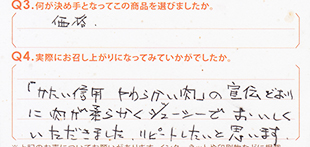 Q3.何が決め手となってこの商品を選びましたか。
価格.
Q4.実際にお召し上がりになってみていかがでしたか。
「かたい信用 やわらかい肉」の宣伝どおり
に肉が柔らかくジューシーでおいしく
いただきました。リピートしたいと思います.